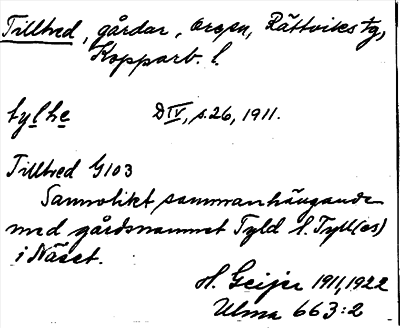 Tillhed, gårdar, Orsa sn, Rättviks tg,
Kopparb. l.
tylhe DIV, s. 26, 1911.
Tillhed G103
Sannolikt sammanhängande
med gårdsnamnet Tyld l. Tyll(es)
i Näset.
H. Geijer 1911, 1922
Ulma 663:2